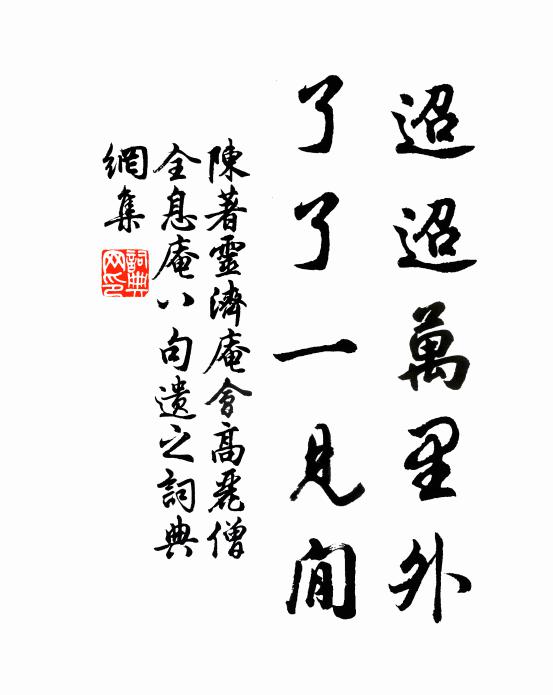 迢迢萬里外
了了一見間
陳著靈濟庵會高麗僧
全息庵八句遺之詞典
網集
詞典網印